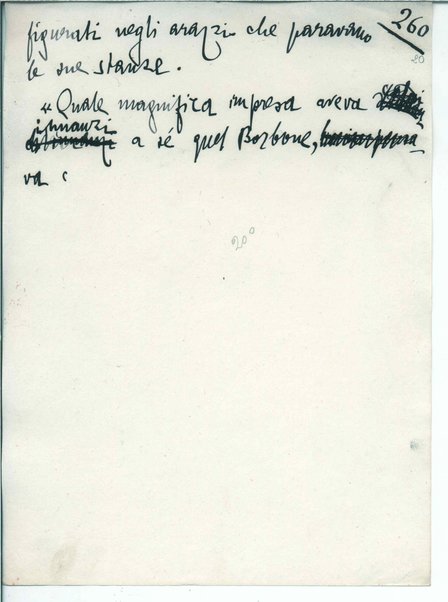 260
20
figurati negli arazzi che paravano
le sue stanze.
« Quale magnifica impresa aveva
innanzi
a sé quel Borbone,
va
20°